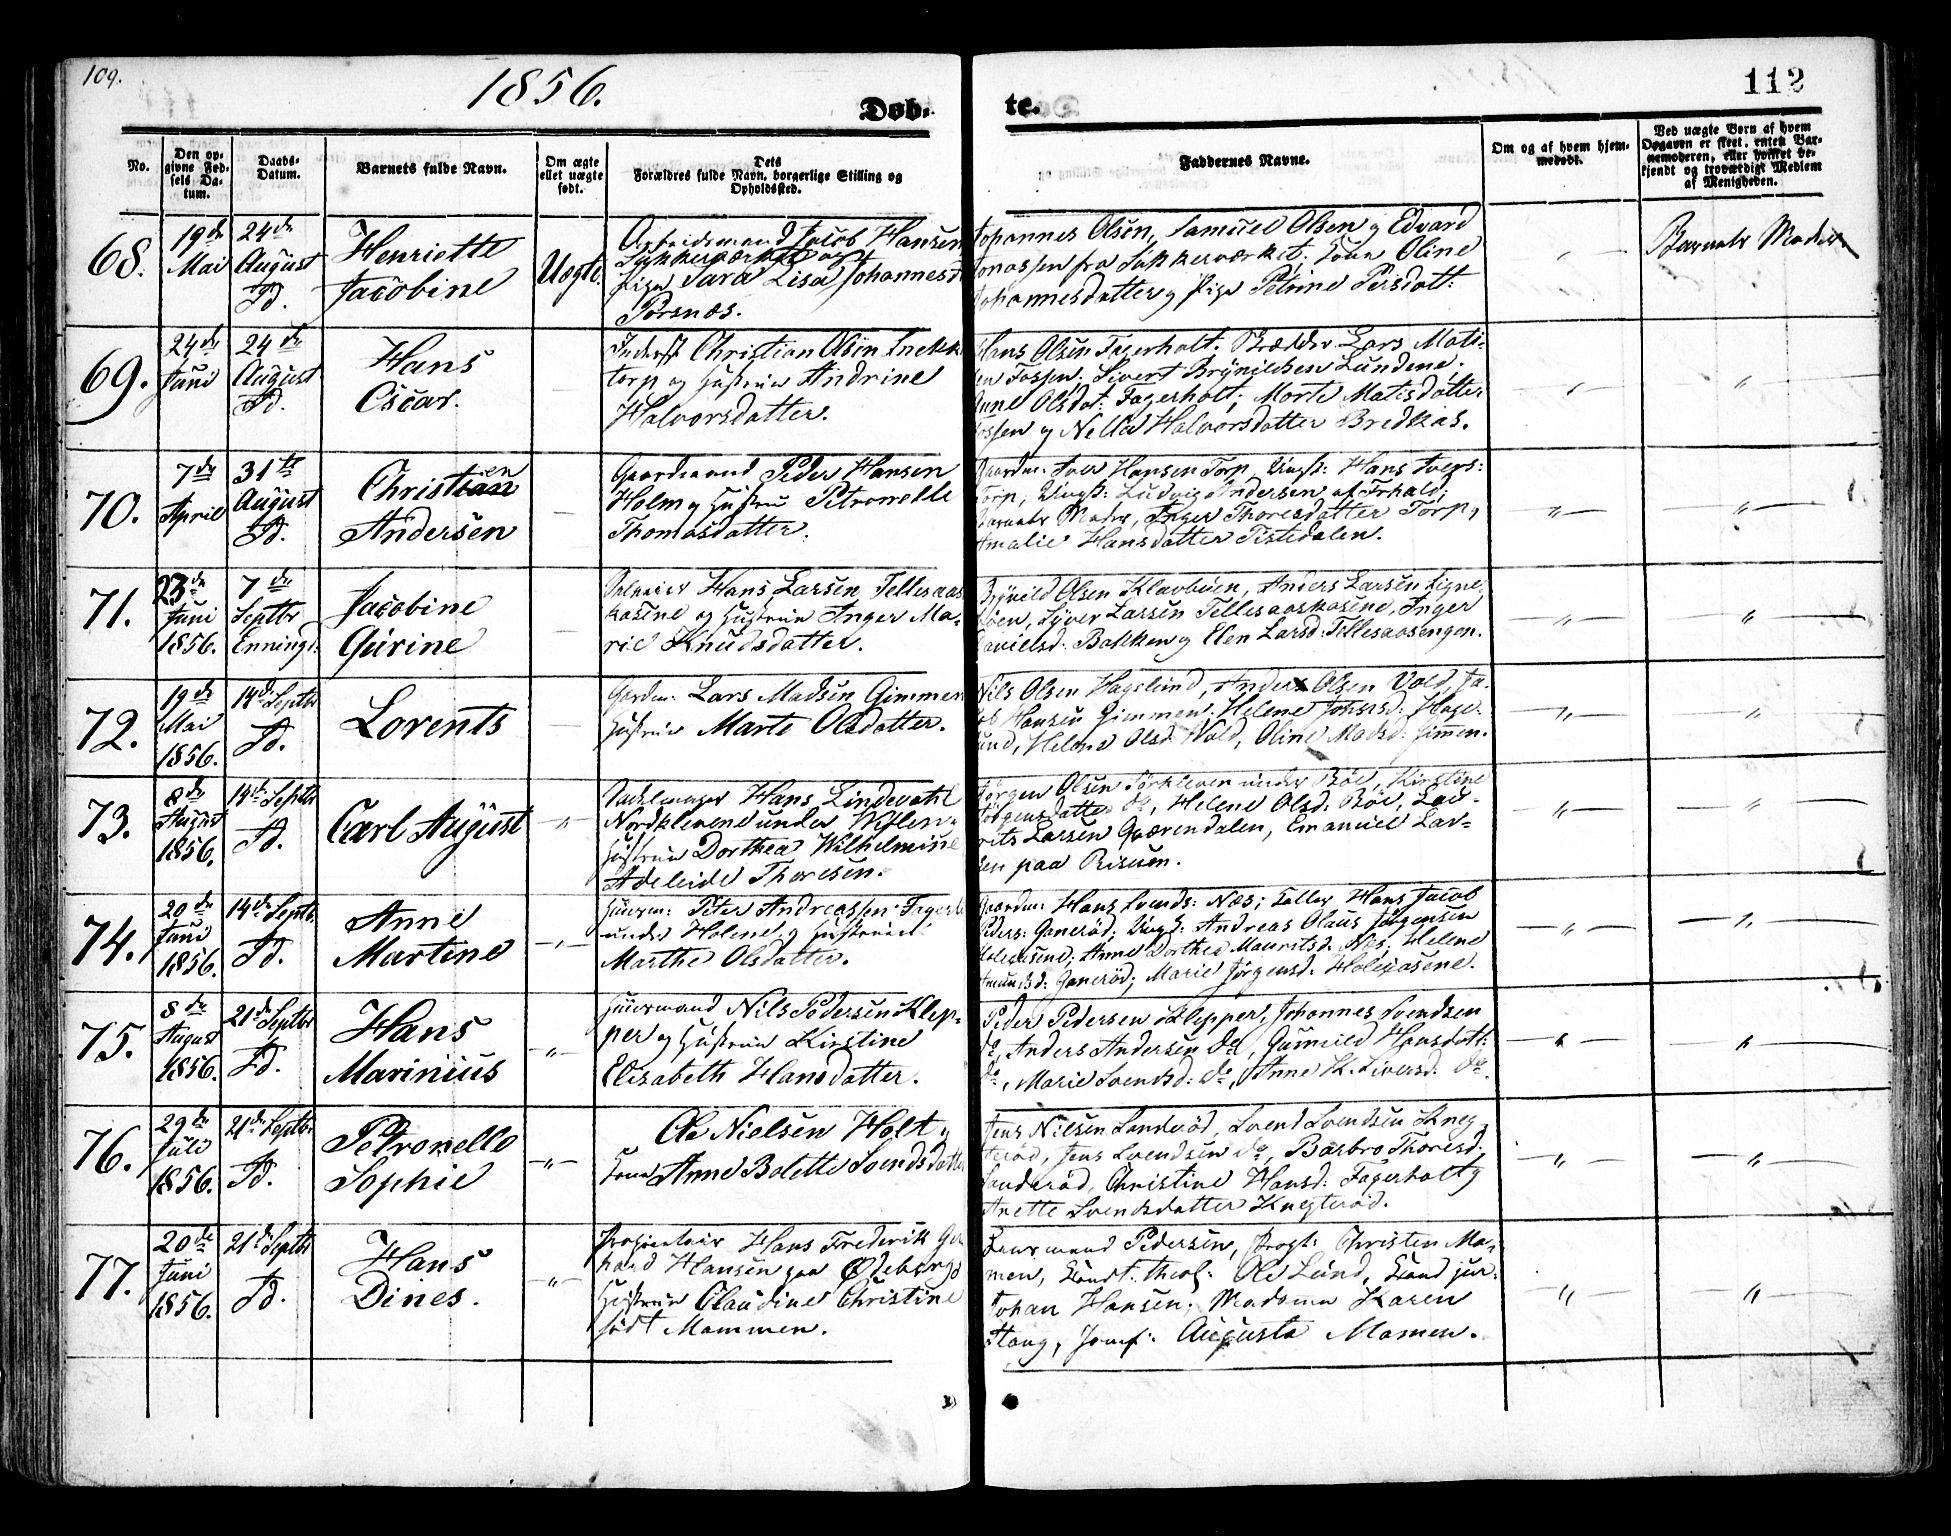 109.
1856.
Døb-
te.
112
No.
Den op-
givne Fød-
sels Da-
tum.
Daabs-
Datum.
Barnets fulde Navn.
Om ægte
eller uægte
født.
Dets
Forældres fulde Navn, borgerlige Stilling og
Opholdssted.
Faddernes Navne.
Om og af hvem hjem-
medøbt.
Ved uægte Børn af hvem
Opgaven er skeet, enten Bar-
nemoderen, eller hvilket be-
kjendt og troværdigt Medlem
af Menigheden.
68.
19de
Mai
24de
August
Id.
Henriette
Jacobine
Uægte.
Arbeidsmand Jacob Hansen
Sukkerværket og
Pige Sara Lisa Johannesd
Porsnæs.
Johannes Olsen, Samuel Olsen og Edvard
Jonassen fra Sukkerværket; Kone Oline
Johannesdatter og Pige Petrine Persdatt:
Barnets Moder
69.
24de
Juni
24de
August
Id.
Hans
Oscar.
Inderst Christian Olsen Snekk
torp og Hustrue Andrine
Halvorsdatter.
Hans Olsen Fagerholt; Lars Mati-
sen Fossen; Sivert Brynildsen Lundene;
Anne Olsdat: Fagerholt; Morte Matisdatter
Fossen og Nella Halvorsdatter Bredkas.
70.
7de
April
31te
August
Id.
Christian
en
Andersen
Gaardmand Peder Hansen
Holm og Hustru Petronelle
Thomasdatter.
Gaardm: Iver Hansen Torp, Ungk: Hans Ivers:
Torp, Ungk: Ludvig Andersen af Frhald;
Barnets Moder, Inger Thoresdatter Torp,
Amalie Hansdatter Tistedalen.
71.
23de
Juni
1856.
7de
Septbr
Enningd.
Jacobine
Gurine
Hans Larsen Tellesaas
kasene og Hustrue Inger Ma-
rie Knudsdatter.
Brynild Olsen Kleveboen, Anders Larsen Ligne
böen, Syver Larsen Tellesaaskasene, Inger
Danielsd: Bakken og Elen Larsd: Tellesaasengen.
72.
19de
Mai
1856.
14de Septbr
Id.
Lorents
Gardm: Lars Madsen Gimmen
Hustrue Marte Olsdatter.
Nils Olsen Hagelund, Anders Olsen Vold, Ja-
cob Hansen Gimmen, Helene Johnsd: Hage-
lund, Helene Olsd: Vold, Oline Madsd: Gimen.
73.
8de
August
1856.
14de Septbr
Id.
Carl August
Dadelmager Hans Lindevahl
Nordklevene under Wiflen.
Hustrue Dorthea Wilhelmine
Adeleide Thoresen.
Jörgen Olsen Törkleven under Böe, Kirstine
Jörgensdatter do, Helene Olsd: Böe, Lau-
rits Larsen Qværendalen, Emanuel Lar-
sen paa Risum.
74.
20de
Juni
1856.
14de Septbr.
Id.
Anne
Martine
Huusm: Peter Andreassen Fagerh
under Holene, og Hustrue
Marthe Olsdatter.
Gaardm: Hans Svends: Næs; Hans Jacob
Peders: Ganeröd; Ungk: Andreas Olaus Jörgensen
Holekasene; Anne Dorthea Mauritsd: Næs; Helene
Amundsd: Ganeröd; Marie Jörgensd: Holekasene.
75.
8de
August
1856.
21de Septbr
Id.
Hans
Marinius
Huusmand Nils Pedersen Klep-
per og Hustrue Kirstine
Elisabeth Hansdatter.
Peder Pedersen Klepper, Johannes Svendsen
do, Anders Andersen do, Gunnild Hansdatt:
do, Marie Svendsd: do, Anne K. Siversd: do.
76.
29de
Juli
1856.
21de Septbr.
Id.
Petronelle
Sophie
Ole Nielsen Holt og
Kone Anne Bolette Svendsdatter
Jens Nilsen Sanderöd, Svend Svendsen Kneg-
teröd, Jens Svendsen do, Barbro Thoresd:
Sanderöd, Christine Hansd: Fagerholt og
Anette Svendsdatter Knegteröd.
77.
20de
Juni
1856.
21de Septbr
Id.
Hans
Dines.
Proprietair Hans Frederik Ger
hard Hansen paa Ødeborg
Hustrue Claudine Christine
født Mammen.
Pedersen, Christen Ma-
men, Kand. theol: Ole Lund, Kand jur.
Johan Hansen; Madamme Karen
Stang, Jomf: Augusta Mamen.